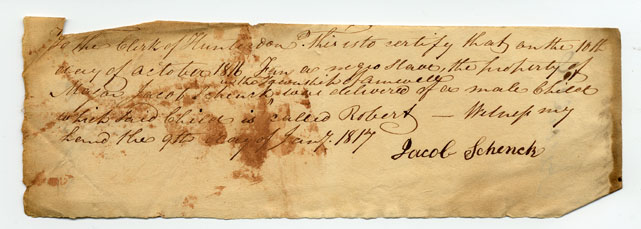 To the Clerk of Hunterdon Sr. this is to certify that on the 10th
day of October 1816 Fan a negro Slave, the property of
in the township of Amwell
Major Jacob Schenck was delivered of a male Child
which said Child is called Robert — Witness my
hand the 9th day of Jany. 1817
Jacob Schenck